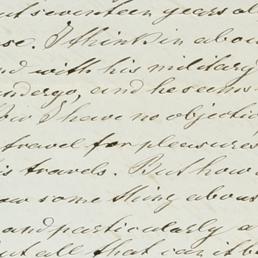 ut seventeen years ol
se. I think in abou
nd with his military
undergo, and he seems
I have no objectio
travel for pleasure
his travels. But how
some thing abou
and particularly a
but all that can it b